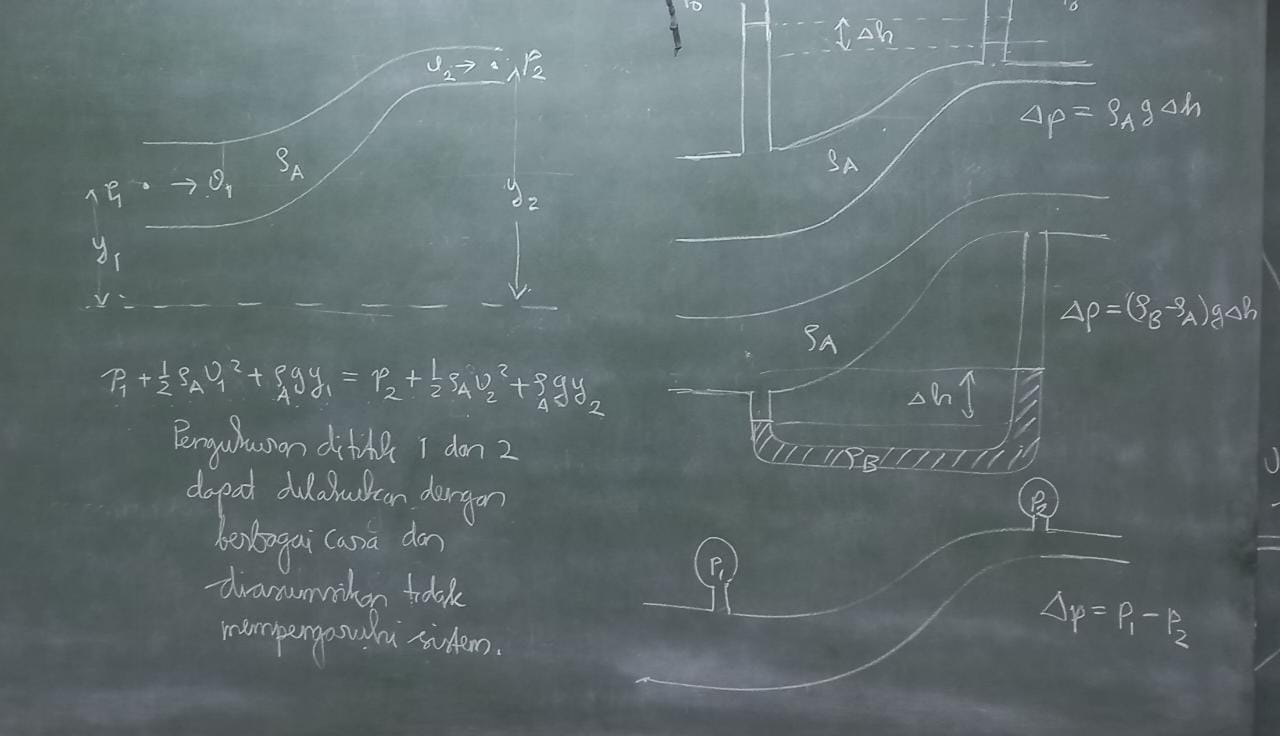 v₂ → · p₂
ρ_A
p₁ · → v₁
y₂
y₁
p₁ + ½ρ_A v₁² + ρ_A g y₁ = p₂ + ½ρ_A v₂² + ρ_A g y₂
Pengukuran dititik 1 dan 2
dapat dilakukan dengan
berbagai cara dan
diasumsikan tidak
mempengaruhi sistem.
Δh
ρ_A
Δp = ρ_A g Δh
ρ_A
Δp = (ρ_B - ρ_A) g Δh
Δh
ρ_B
p₁
p₂
Δp = p₁ - p₂